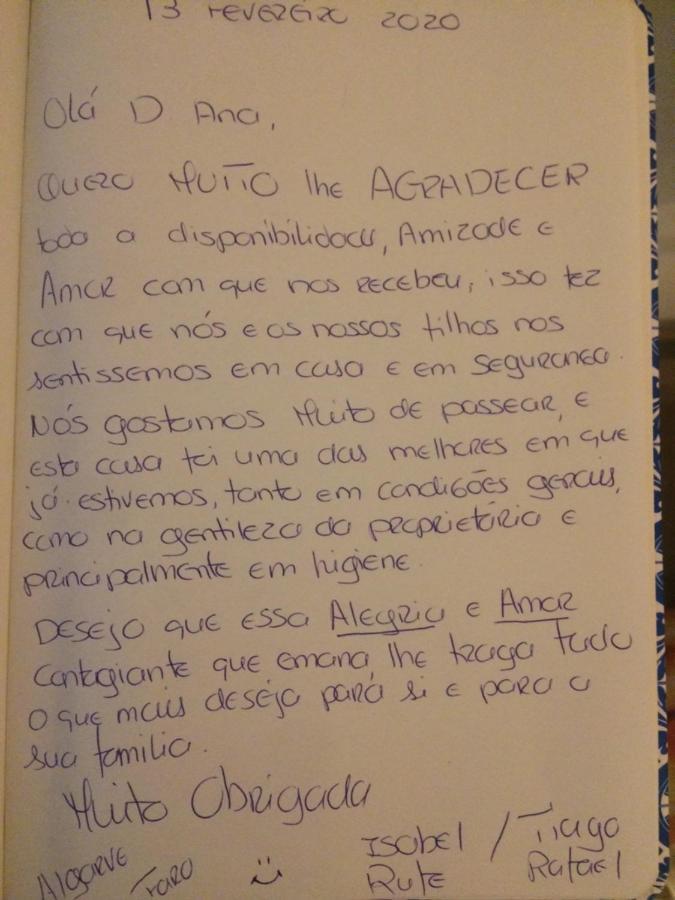 13 FEVEREIRO 2020
Olá D Ana,
QUERO MUITO lhe AGRADECER
toda a disponibilidade, Amizade e
Amor com que nos recebeu, isso fez
com que nós e os nossos filhos nos
sentissemos em casa e em segurança.
Nós gostamos Muito de passear, e
esta casa foi uma das melhores em que
já estivemos, tanto em condições gerais,
como na gentileza da proprietária e
principalmente em higiene.
Desejo que essa Alegria e Amor
contagiante que emana lhe traga tudo
o que mais deseja para si e para a
sua família.
Muito Obrigada
Algarve Faro :) Isabel / Tiago
Rute Rafael